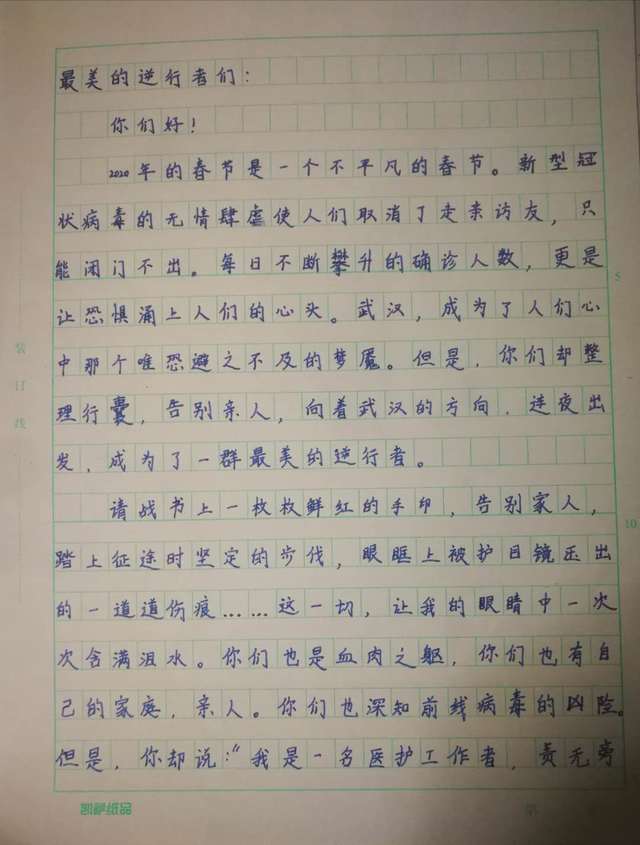 最美的逆行者们：
你们好！
2020年的春节是一个不平凡的春节。新型冠
状病毒的无情肆虐使人们取消了走亲访友，只
能闭门不出。每日不断攀升的确诊人数，更是
让恐惧涌上人们的心头。武汉，成为了人们心
中那个唯恐避之不及的梦魇。但是，你们却整
理行囊，告别亲人，向着武汉的方向，连夜出
发，成为了一群最美的逆行者。
请战书上一枚枚鲜红的手印，告别家人，
踏上征途时坚定的步伐，眼眶上被护目镜压出
的一道道伤痕……这一切，让我的眼睛中一次
次含满泪水。你们也是血肉之躯，你们也有自
己的家庭，亲人。你们也深知前线病毒的凶险。
但是，你却说：“我是一名医护工作者，责无旁
装订线
5
10
凯萨纸品
第